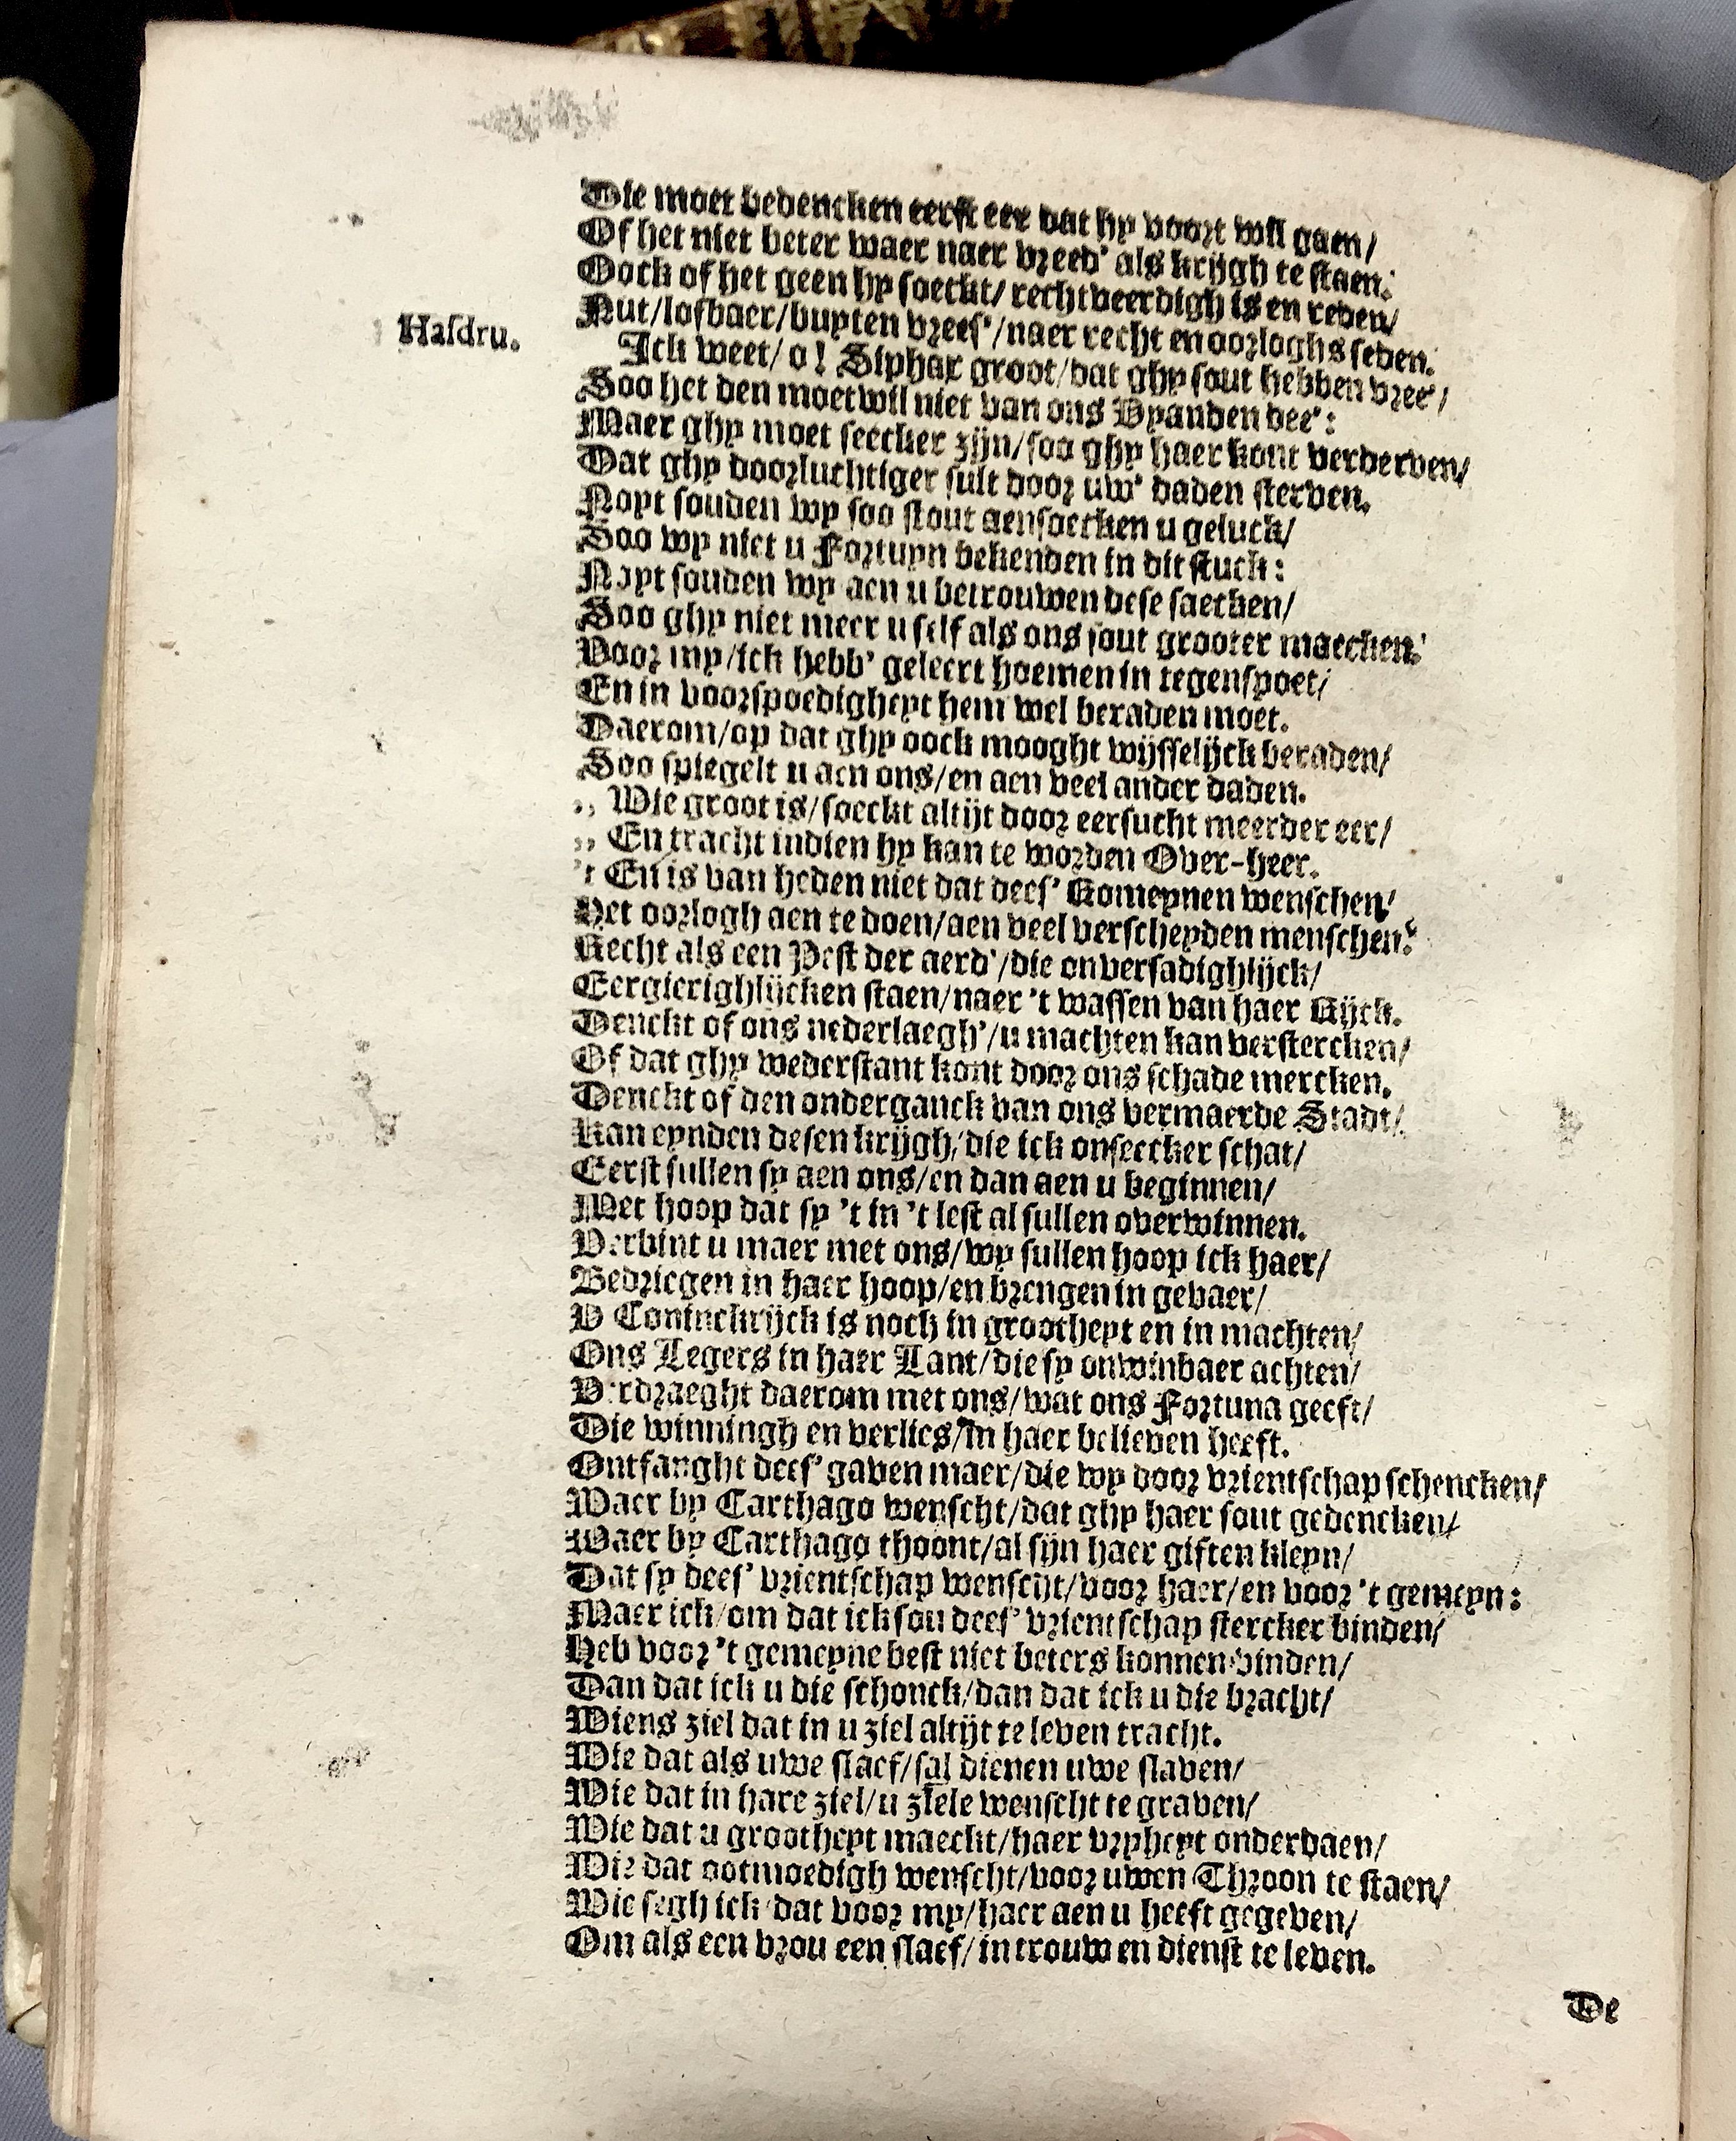 Die moet bedencken eerst eer dat hy voort wil gaen/
Of het niet beter waer naer vreed' als krijgh te staen:
Oock of het geen hy soeckt/ rechtveerdigh is en reden/
Nut/lofbaer/buyten vrees'/naer recht en oorloghs seden.
Hasdru. Ick weet/ o! Siphax groot/dat ghy sout hebben vree'/
Soo het den moetwil niet van ons Vyanden dee':
Maer ghy moet seecker zijn/soo ghy haer kont verderven/
Dat ghy doorluchtiger sult door uw' daden sterven.
Noyt souden wy soo stout aensoecken u geluck/
Soo wy niet u Fortuyn bekenden in dit stuck:
Noyt souden wy aen u betrouwen dese saecken/
Soo ghy niet meer u self als ons sout grooter maecken.
Voor my/ick hebb' geleert hoemen in tegenspoet/
En in voorspoedigheyt hem wel beraden moet.
Daerom/op dat ghy oock mooght wijsselijck beraden/
Soo spiegelt u aen ons/en aen veel ander daden.
,, Wie groot is/soeckt altijt door eersucht meerder eer/
,, En tracht indien hy kan te worden Over-heer.
't En is van heden niet dat dees' Romeynen wenschen/
Het oorlogh aen te doen/aen veel verscheyden menschen:
Recht als een Pest der aerd'/die onversadighlijck/
Eergierighlijcken staen/naer 't wassen van haer Rijck.
Denckt of ons nederlaegh'/u machten kan verstercken/
Of dat ghy wederstant kont door ons schade mercken.
Denckt of den onderganck van ons vermaerde Stadt/
Kan eynden desen krijgh/die ick onseecker schat/
Eerst sullen sy aen ons/en dan aen u beginnen/
Met hoop dat sy 't in 't lest al sullen overwinnen.
Verbint u maer met ons/wy sullen hoop ick haer/
Bedriegen in haer hoop/en brengen in gevaer/
V Coninckrijck is noch in grootheyt en in machten/
Ons Legers in haer Lant/die sy onwinbaer achten/
Verdraeght daerom met ons/wat ons Fortuna geeft/
Die winningh en verlies/in haer believen heeft.
Ontfanght dees' gaven maer/die wy door vrientschap schencken/
Waer by Carthago wenscht/dat ghy haer sout gedencken/
Waer by Carthago thoont/al sijn haer giften kleyn/
Dat sy dees' vrientschap wenscht/voor haer/en voor 't gemeyn:
Maer ick/om dat ick sou dees' vrientschap stercker binden/
Heb voor 't gemeyne best niet beters konnen vinden/
Dan dat ick u die schonck/dan dat ick u die bracht/
Wiens ziel dat in u ziel altijt te leven tracht.
Wie dat als uwe slaef/sal dienen uwe slaven/
Wie dat in hare ziel/u ziele wenscht te graven/
Wie dat u grootheyt maeckt/haer vryheyt onderdaen/
Wie dat ootmoedigh wenscht/voor uwen Throon te staen/
Wie segh ick/dat voor my/haer aen u heeft gegeven/
Om als een vrou een slaef/in trouw en dienst te leven.
De